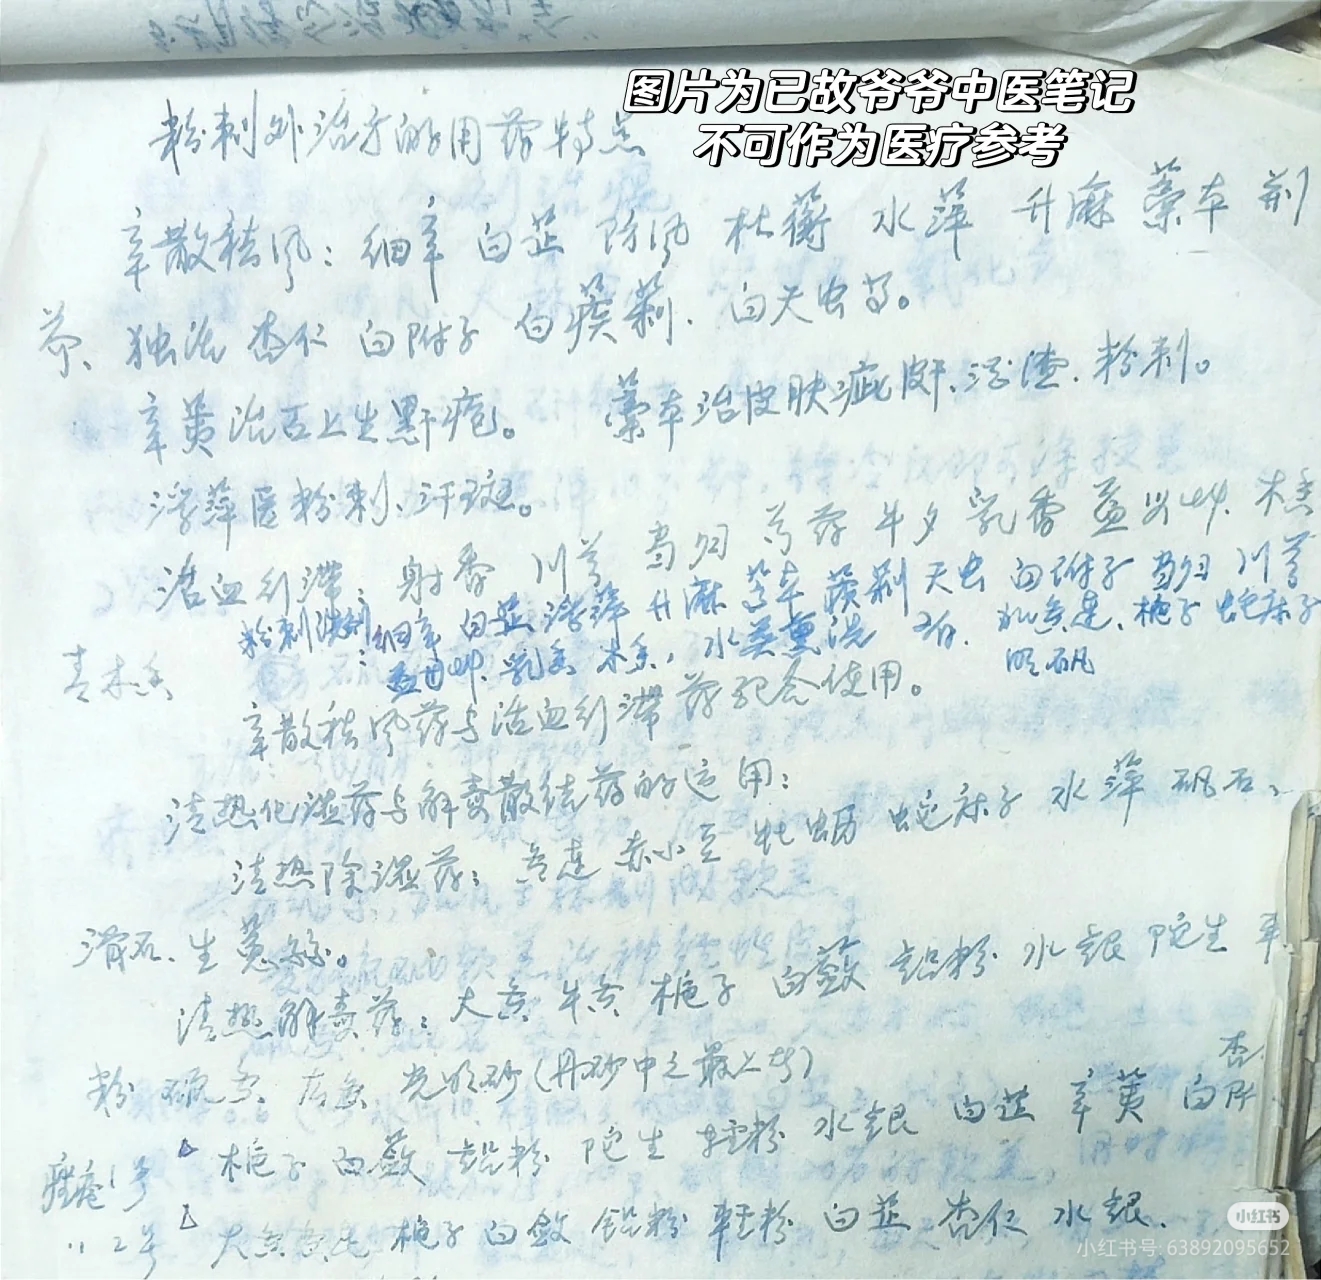 图片为已故爷爷中医笔记
不可作为医疗参考
粉刺外治方的用药特点
辛散祛风：细辛 白芷 防风 杜蘅 水萍 升麻 藁本 荆
芥、独活 杏仁 白附子 白蒺藜、白天虫等。
辛荑治面上生黑干疱。 藁本治皮肤疵皯、酒渣、粉刺。
浮萍医粉刺、汗斑。
活血行滞：射香 川芎 当归 芍药 牛夕 乳香 益母草 木香
粉刺洗剂：细辛 白芷 浮萍 升麻 藁本 蒺藜 天虫 白附子 当归 川芎
益母草、乳香 木香，水煎熏洗 黄连、栀子 蛇床子
青木香
明矾
辛散祛风药与活血行滞药配合使用。
清热化湿药与解毒散结药的运用：
清热除湿药：黄连 赤小豆 牡蛎 蛇床子 水萍 矾石、
滑石、生葱
清热解毒药：大黄 牛黄 栀子 白蔹 铅粉 水银 陀生 
粉 硫黄 光明砂(丹砂中之最上者)
杏
痤疮1号 栀子 白蔹 铅粉 陀生 轻粉 水银 白芷 辛荑 白附
〃 2号 大黄 栀子 白蔹 铅粉 轻粉 白芷 杏仁 水银、
小红书
小红书号: 63892095652